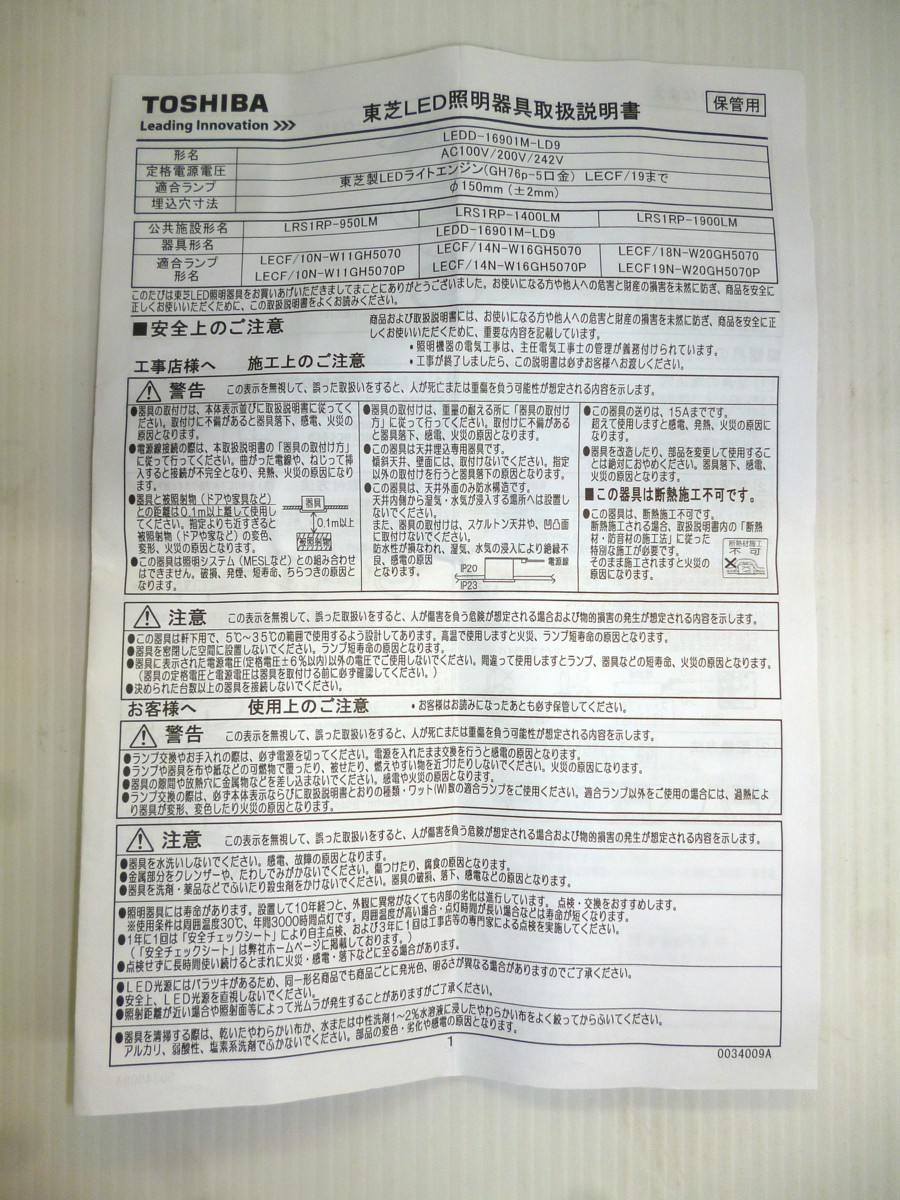 TOSHIBA
Leading Innovation >>>
東芝LED照明器具取扱説明書
保管用
形名 LEDD-16901M-LD9
定格電源電圧 AC100V/200V/242V
適合ランプ 東芝製LEDライトエンジン(GH76p-5口金) LECF/19まで
埋込穴寸法 φ150mm (±2mm)
公共施設形名 LRS1RP-950LM LRS1RP-1400LM LRS1RP-1900LM
器具形名 LEDD-16901M-LD9
適合ランプ形名 LECF/10N-W11GH5070 LECF/14N-W16GH5070 LECF/18N-W20GH5070
LECF/10N-W11GH5070P LECF/14N-W16GH5070P LECF19N-W20GH5070P
このたびは東芝LED照明器具をお買いあげいただきましてまことにありがとうございました。お使いになる方や他人への危害と財産の損害を未然に防ぎ、商品を安全に
正しくお使いいただくために、この取扱説明書をよくお読みください。
■安全上のご注意
商品および取扱説明書には、お使いになる方や他人への危害と財産の損害を未然に防ぎ、商品を安全に正
しくお使いいただくために、重要な内容を記載しています。
・照明機器の電気工事は、主任電気工事士の管理が義務付けられています。
・工事が終了しましたら、この説明書は必ずお客様へお渡しください。
工事店様へ 施工上のご注意
警告 この表示を無視して、誤った取扱いをすると、人が死亡または重傷を負う可能性が想定される内容を示します。
●器具の取付けは、本体表示並びに取扱説明書に従ってく
ださい。取付けに不備があると器具落下、感電、火災の
原因となります。
●電源線接続の際は、本取扱説明書の「器具の取付け方」
に従って行ってください。曲がった電線や、ねじって挿
入すると接続が不完全となり、発熱、火災の原因になり
ます。
●器具と被照射物(ドアや家具など)
との距離は0.1m以上離して使用し
てください。指定よりも近すぎると
被照射物(ドアや家など)の変色、
変形、火災の原因となります。
器具
0.1m以上
被照射物
●この器具は照明システム(MESLなど)との組み合わせ
はできません。破損、発煙、短寿命、ちらつきの原因と
なります。
●器具の取付けは、重量の耐える所に「器具の取付け
方」に従って行ってください。取付けに不備がある
と器具落下、感電、火災の原因となります。
●この器具は天井埋込専用器具です。
傾斜天井、壁面には、取付けないでください。指定
以外の取付けを行うと器具落下の原因となります。
●この器具は、天井外面のみ防水構造です。
天井内側から湿気・水気が浸入する場所へは設置し
ないでください。
また、器具の取付けは、スケルトン天井や、凹凸面
に取付けないでください。
防水性が損なわれ、湿気、水気の浸入により絶縁不
良、感電の原因
となります。
IP20
IP23
電源線
●この器具の送りは、15Aまでです。
超えて使用しますと感電、発熱、火災の原因に
なります。
●器具を改造したり、部品を変更して使用するこ
とは絶対におやめください。器具落下、感電、
火災の原因となります。
■この器具は断熱施工不可です。
●この器具は、断熱施工不可です。
断熱施工される場合、取扱説明書内の「断熱
材・防音材の施工法」に従った
特別な施工が必要です。
そのまま施工されますと火災の
原因になります。
断熱材施工
不可
注意 この表示を無視して、誤った取扱いをすると、人が傷害を負う危険が想定される場合および物的損害の発生が想定される内容を示します。
●この器具は軒下用で、5℃~35℃の範囲で使用するよう設計してあります。高温で使用しますと火災、ランプ短寿命の原因となります。
●器具を密閉した空間に設置しないでください。ランプ短寿命の原因となります。
●器具に表示された電源電圧(定格電圧±6%以内)以外の電圧でご使用しないでください。間違って使用しますとランプ、器具などの短寿命、火災の原因となります。
(器具の定格電圧と電源電圧は器具を取付ける前に必ず確認してください。)
●決められた台数以上の器具を接続しないでください。
お客様へ 使用上のご注意 ・お客様はお読みになったあとも必ず保管してください。
警告 この表示を無視して、誤った取扱いをすると、人が死亡または重傷を負う可能性が想定される内容を示します。
●ランプ交換やお手入れの際は、必ず電源を切ってください。電源を入れたまま交換を行うと感電の原因となります。
●ランプや器具を布や紙などの可燃物で覆ったり、被せたり、燃えやすい物を近づけたりしないでください。火災の原因になります。
●器具の隙間や放熱穴に金属物などを差し込まないでください。感電や火災の原因となります。
●ランプ交換の際は、必ず本体表示ならびに取扱説明書とおりの種類・ワット(W)数の適合ランプをご使用ください。適合ランプ以外をご使用の場合には、過熱によ
り器具が変形、変色したり火災の原因となります。
注意 この表示を無視して、誤った取扱いをすると、人が傷害を負う危険が想定される場合および物的損害の発生が想定される内容を示します。
●器具を水洗いしないでください。感電、故障の原因となります。
●金属部分をクレンザーや、たわしでみがかないでください。傷つけたり、腐食の原因となります。
●器具を洗剤・薬品などでふいたり殺虫剤をかけないでください。器具の破損、落下、感電などの原因となります。
●照明器具には寿命があります。設置して10年経つと、外観に異常がなくても内部の劣化は進行しています。点検・交換をおすすめします。
※使用条件は周囲温度30℃、年間3000時間点灯です。周囲温度が高い場合・点灯時間が長い場合などは寿命が短くなります。
●1年に1回は「安全チェックシート」により自主点検、および3年に1回は工事店等の専門家による点検を実施してください。
(「安全チェックシート」は弊社ホームページに掲載しております。)
●点検せずに長時間使い続けるとまれに火災・感電・落下などに至る場合があります。
●LED光源にはバラツキがあるため、同一形名商品でも商品ごとに発光色、明るさが異なる場合がありますのでご了承ください。
●安全上、LED光源を直視しないでください。
●照射距離が近い場合や照射面等によって光ムラが発生することがありますがご了承ください。
●器具を清掃する際は、乾いたやわらかい布か、水または中性洗剤1~2%水溶液に浸したやわらかい布をよく絞ってからふいてください。
アルカリ、弱酸性、塩素系洗剤でふかないでください。部品の変色・劣化や感電の原因となります。
1
0034009A